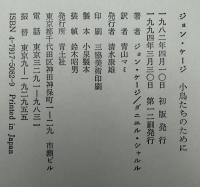 ジョン・ケージ 小鳥たちのために
一九八二年四月一〇日 初版発行
一九九四年三月三〇日 第一二刷発行
著者 ジョン・ケージ/ダニエル・シャルル
訳者 青山マミ
発行者 清水康雄
印刷 三協美術印刷
製本 小泉製本
装幀 鈴木昭男
発行所 青土社
東京都千代田区神田神保町一-二九 市瀬ビル
電話 東京三二九一-九八三一
振替 東京九-一九二九五五
ISBN 4-7917-5082-9 Printed in Japan